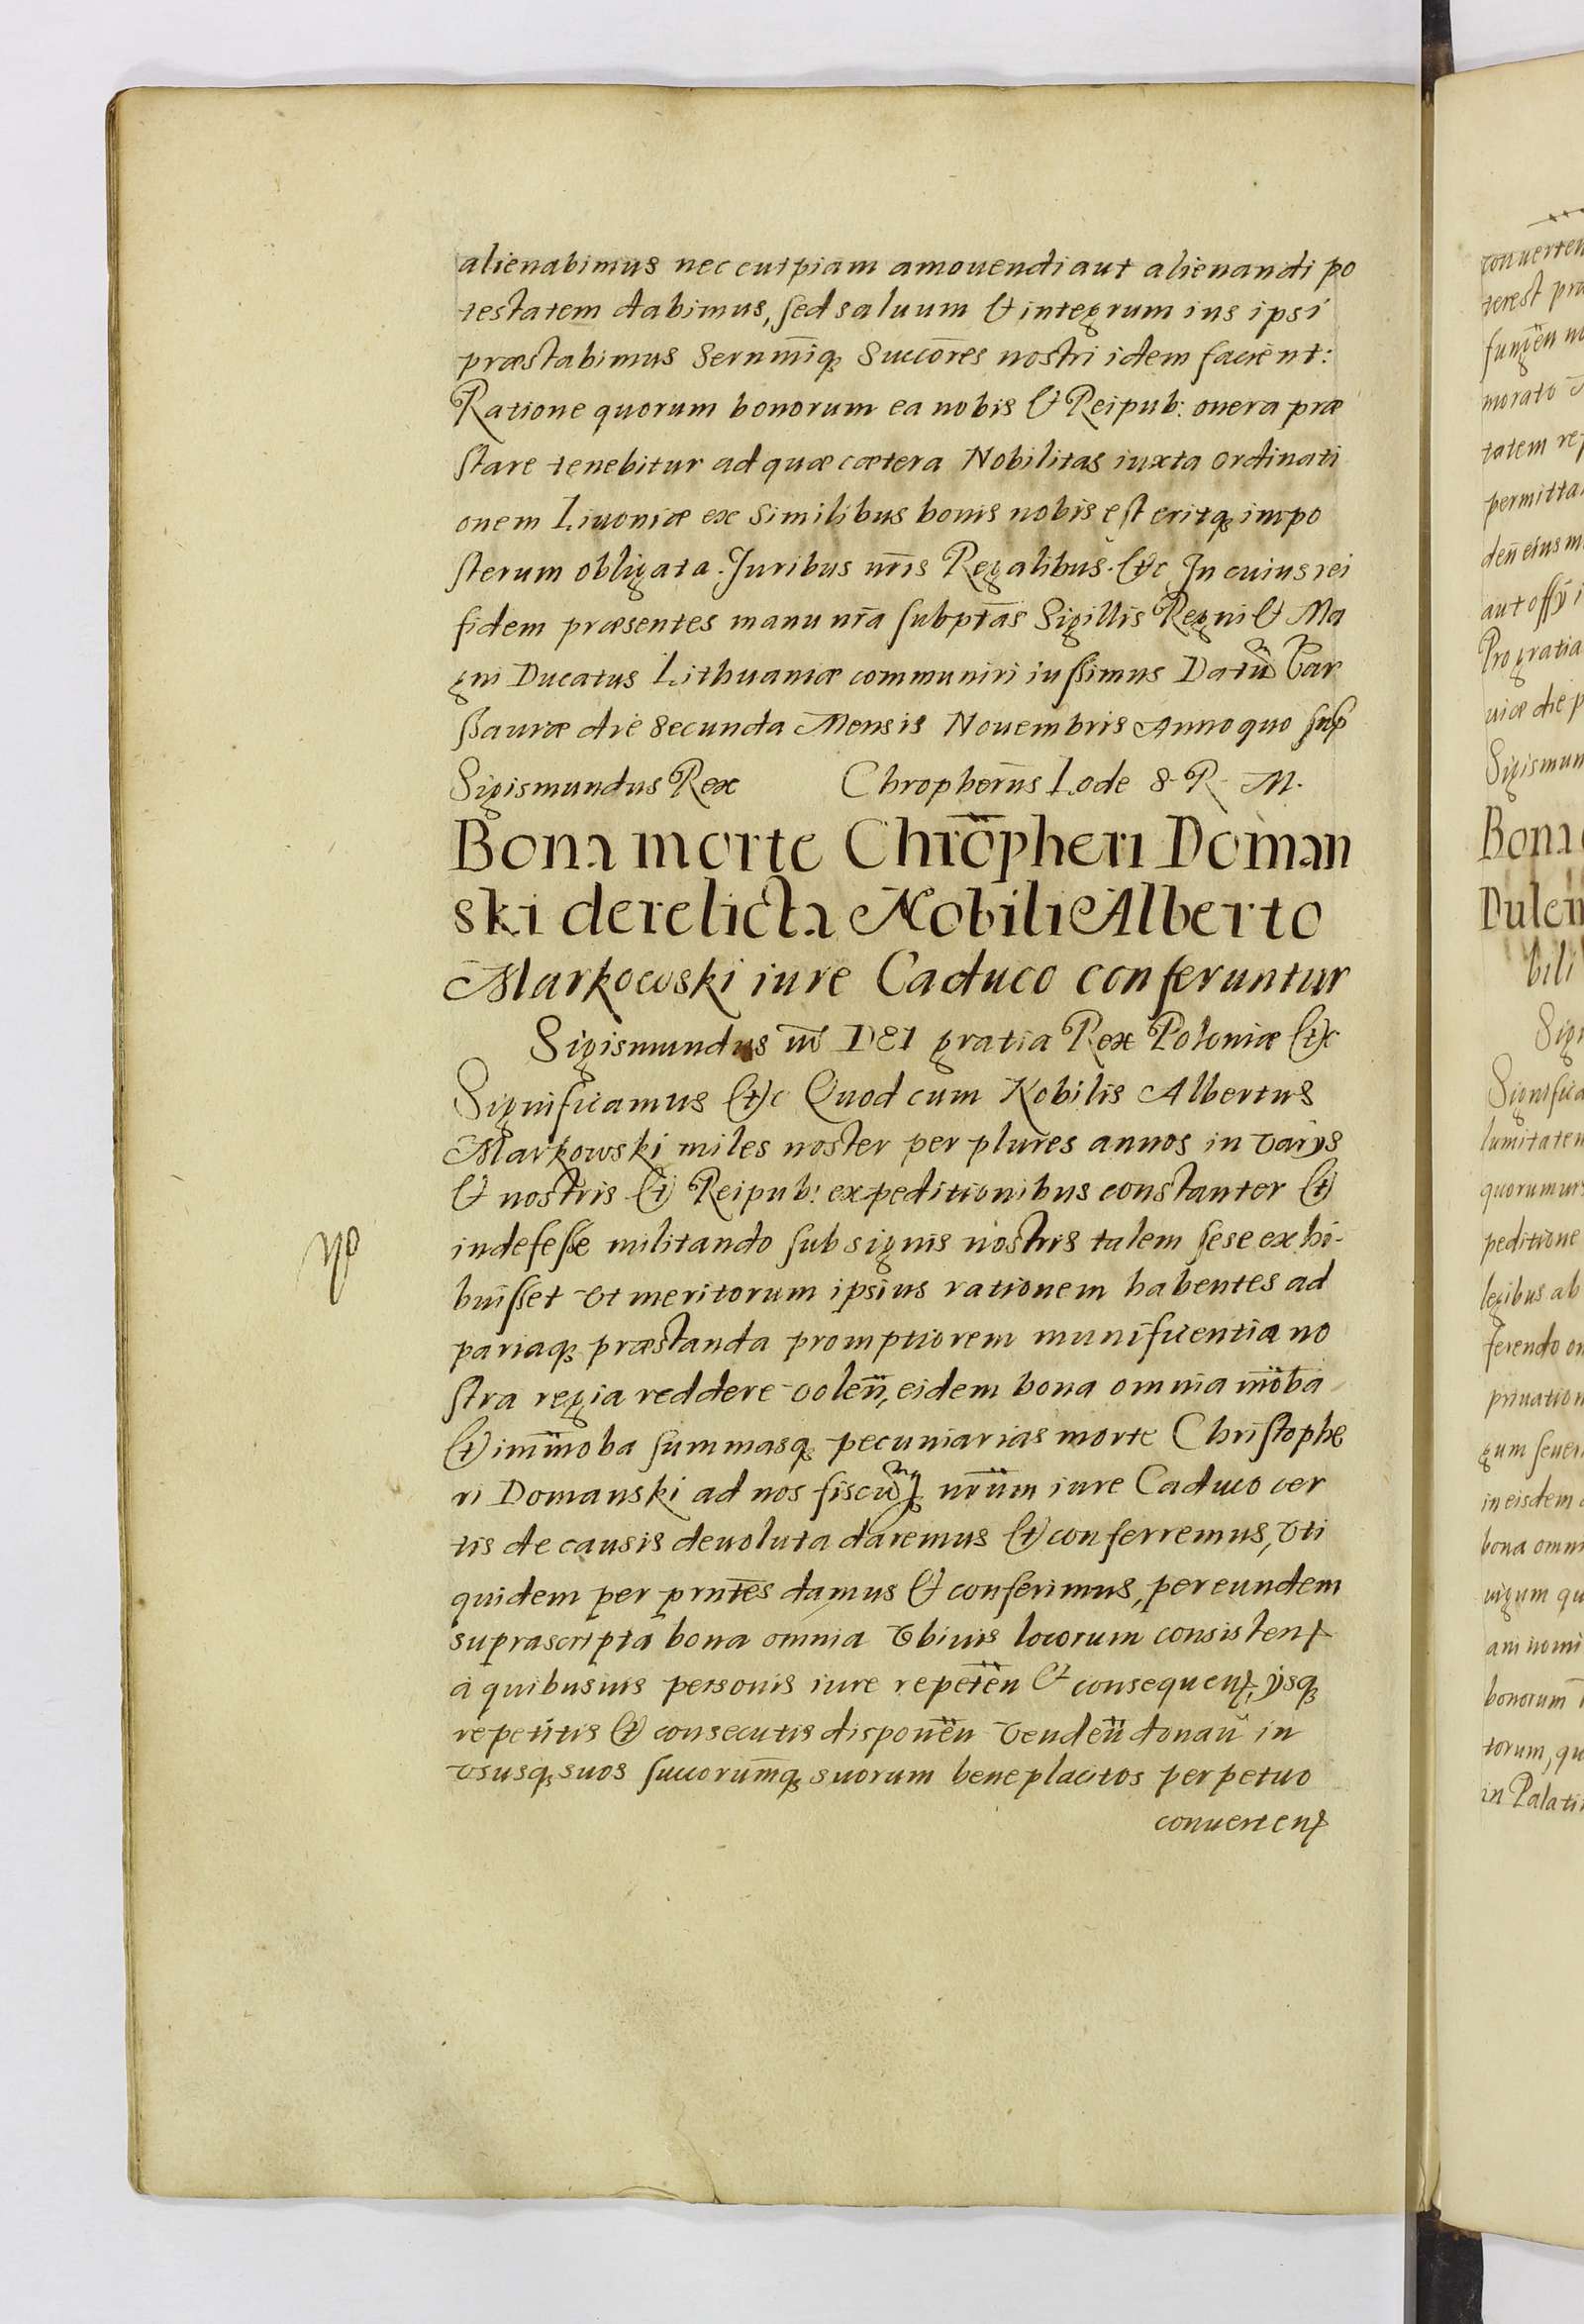 alienabimus nec cuipiam amouendi aut alienandi po
testatem dabimus, sed saluum & integrum ius ipsi
præstabimus Sernm̄iq3 Succōres nostri idem facient:
Ratione quorum bonorum ea nobis & Reipub: onera præ
stare tenebitur ad quæ cætera Nobilitas iuxta ordinati
onem Liuoniæ ex Similibus bonis nobis est eritq3 impo
sterum obligata. Juribus nr̄is Regalibus. &c In cuius rei
fidem præsentes manu nr̄a subptās Sigillis Regni & Ma
gni Ducatus Lithuaniæ communiri iussimus Datū Var
ssauiæ die Secunda Mensis Nouembris Anno quo sup
Sigismundus Rex Chrophorūs Lode S. R. M.
Bona morte Chrōpheri Doman
ski derelicta Nobili Alberto
Markowski iure Caduco conferuntur
Sigismundus iii DEI gratia Rex Poloniæ &c
Significamus &c Quod cum Nobilis Albertus
Markowski miles noster per plures annos in varys
& nostris & Reipub: expeditionibus constanter &
indefesse militando sub signis nostris talem sese exhi-
buisset vt meritorum ipsius rationem habentes ad
pariaq3 præstanda promptiorem munificentia no
stra regia reddere volen̄, eidem bona omnia mōba
& immoba summasq3 pecuniarias morte Christophe
ri Domanski ad nos fiscūq3 nrūm iure Caduco cer
tis de causis deuoluta daremus & conferremus, vti
quidem per prntēs damus & conferimus, per eundem
suprascripta bona omnia vbiuis locorum consisten̄
à quibusuis personis iure repetēn & consequen̄, ijsq3
repetitis & consecutis disponēn venden̄ donan̄ in
vsusq3 suos succorum̄q3 suorum beneplacitos perpetuo
conuerten̄
conuerten
terest
morato
tatem
Pro gratia
Sigismun
Bona
Significa
lumitatem
peditione
legibus ab
ferendo
in eisdem
bona omni
bonorum
torum, qu
in Palati